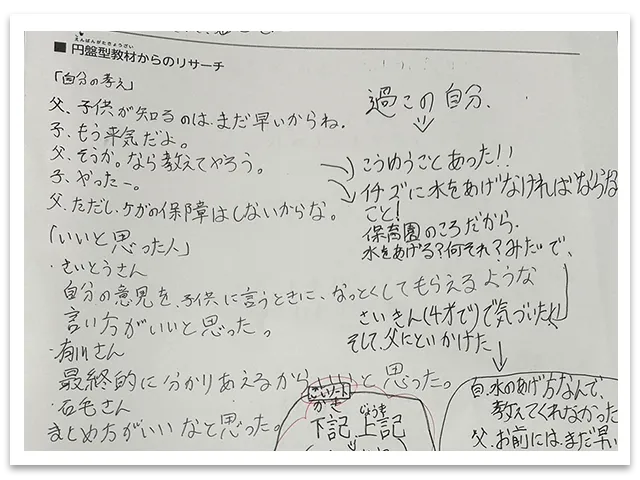 えんばんがたきょうざい
■円盤型教材からのリサーチ
「自分の考え」
父、子供が知るのは、まだ早いからね.
子、もう平気だよ。
父、そうか。なら教えてやろう。
子、やったー。
父、ただし、ケガの保障はしないからな。
「いいと思った人」
・さいとうさん
自分の意見を、子供に言うときに、なっとくしてもらえるような
言い方がいいと思った。
・有川さん
最終的に分かりあえるから、いいと思った。
・石毛さん
まとめ方がいいなと思った。
過この自分.
こうゆうことあった!!
イチズに水をあげなければならな
こと!
保育園のころだから.
水をあげる?何それ?みたいで、
さいきん(4才で)で気づいた
そして、父にといかけた
自、水のあげ方なんで、
教えてくれなかった
父、お前には、まだ早い
かき
下記
じょうき
上記